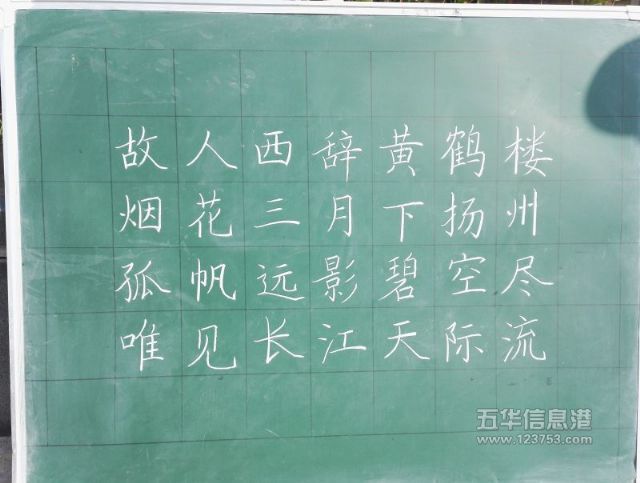 故人西辞黄鹤楼
烟花三月下扬州
孤帆远影碧空尽
唯见长江天际流
五华信息港
www.123753.com